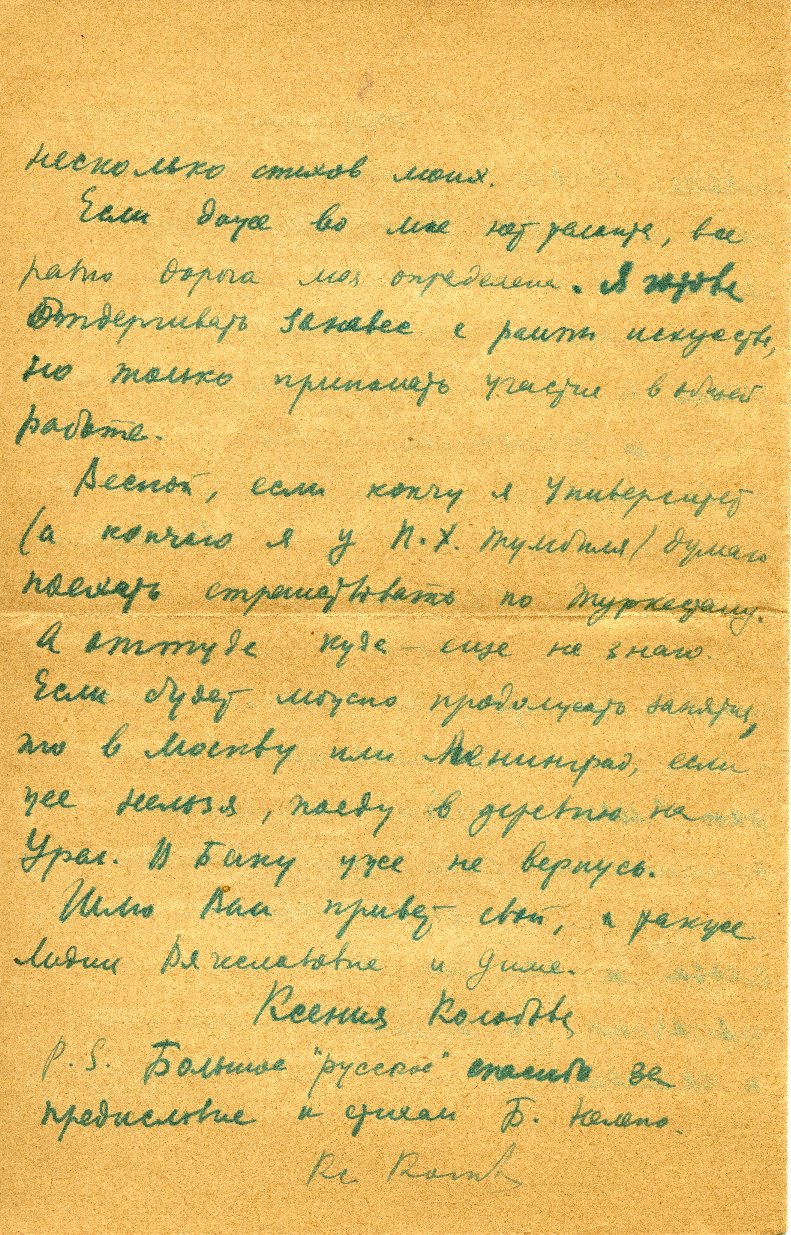 несколько стихов моих.
Если даже во мне нет таланта, все
равно дорога моя определена. Я готова
отдергивать занавес с рампы искусства,
но только принимать участие в общей
работе.
Весной, если кончу я Университет
(а кончаю я у П.Х. Тумбиля) думаю
поехать странствовать по Туркестану.
А оттуда куда – еще не знаю.
Если будет можно продолжать занятия,
то в Москву или Ленинград, если
же нельзя, поеду в деревню на
Урал. В Баку уже не вернусь.
Шлю Вам привет свой, а также
Лидии Вячеславовне и Диме.
Ксения Колобова
P.S. Большое "русское" спасибо за
предисловие к стихам Б.
Кс. Колобова